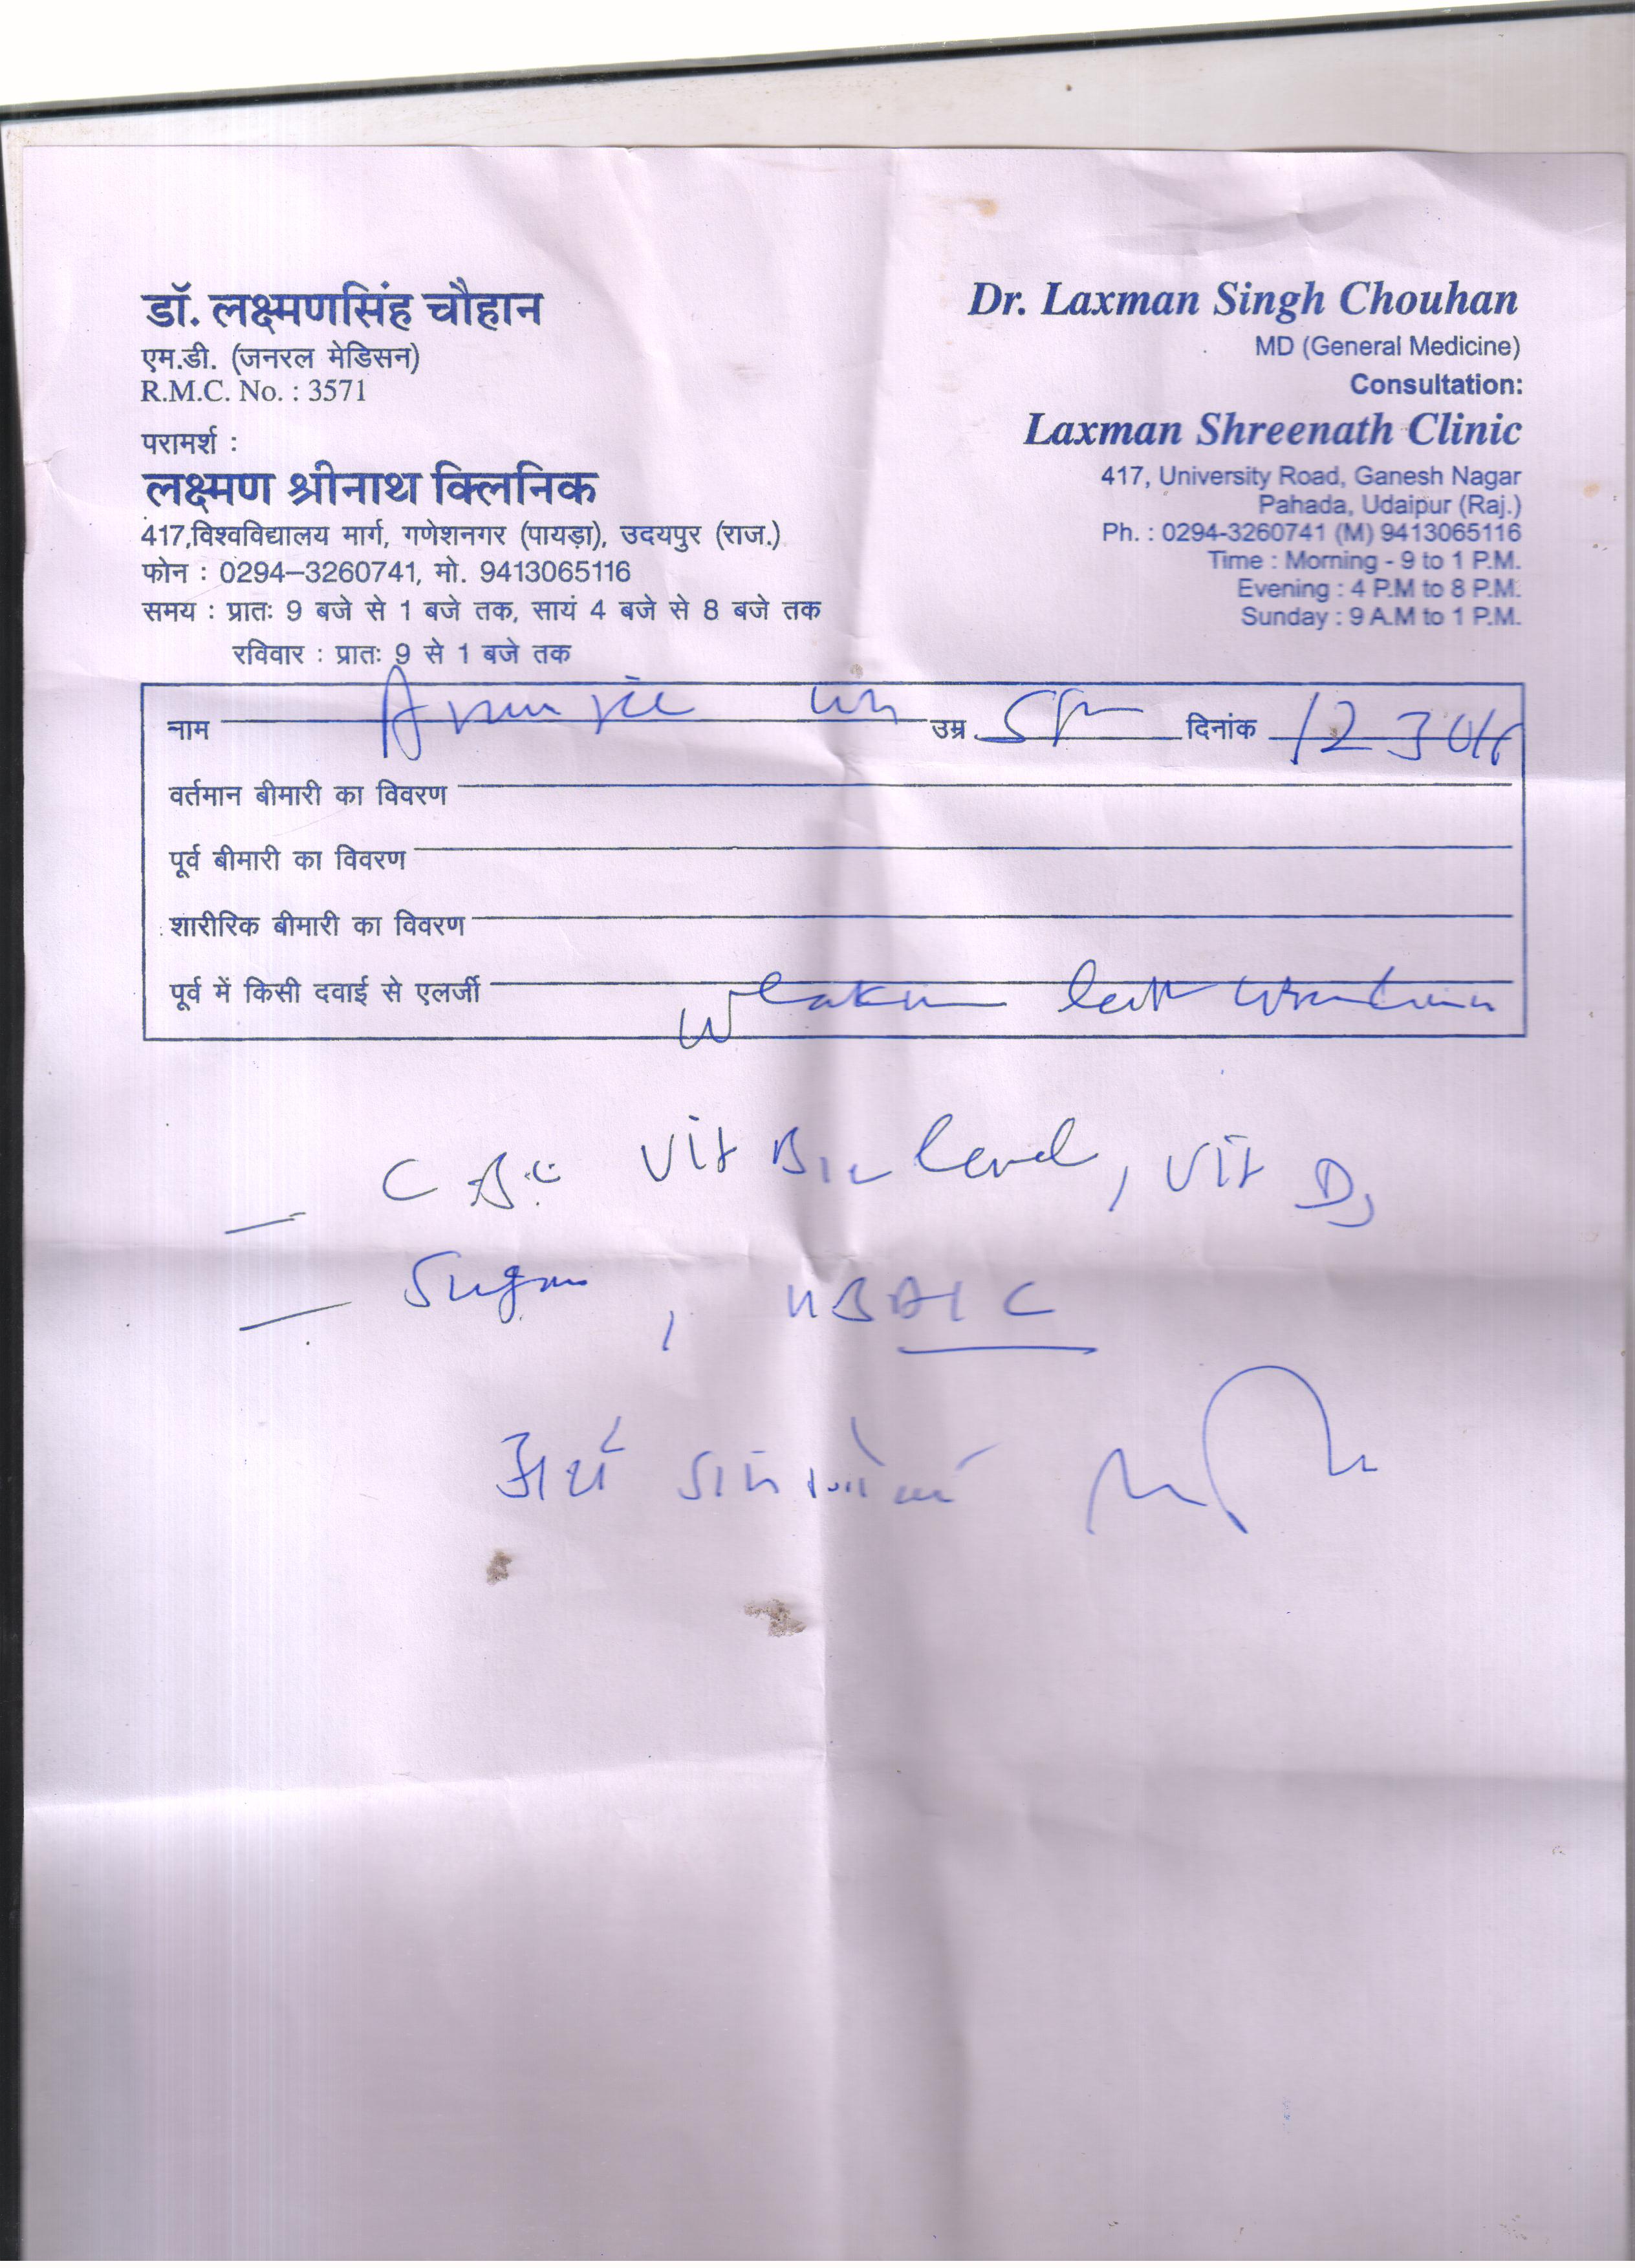 डॉ. लक्ष्मणसिंह चौहान
एम.डी. (जनरल मेडिसन)
R.M.C. No. : 3571
परामर्श :
लक्ष्मण श्रीनाथ क्लिनिक
417,विश्वविद्यालय मार्ग, गणेशनगर (पायड़ा), उदयपुर (राज.)
फोन : 0294–3260741, मो. 9413065116
समय : प्रातः 9 बजे से 1 बजे तक, सायं 4 बजे से 8 बजे तक
रविवार : प्रातः 9 से 1 बजे तक
Dr. Laxman Singh Chouhan
MD (General Medicine)
Consultation:
Laxman Shreenath Clinic
417, University Road, Ganesh Nagar
Pahada, Udaipur (Raj.)
Ph. : 0294-3260741 (M) 9413065116
Time : Morning - 9 to 1 P.M.
Evening : 4 P.M to 8 P.M.
Sunday : 9 A.M to 1 P.M.
नाम उम्र दिनांक
वर्तमान बीमारी का विवरण
पूर्व बीमारी का विवरण
शारीरिक बीमारी का विवरण
पूर्व में किसी दवाई से एलर्जी
CBC Vit B12 level, Vit D3
Sugar, HBA1C